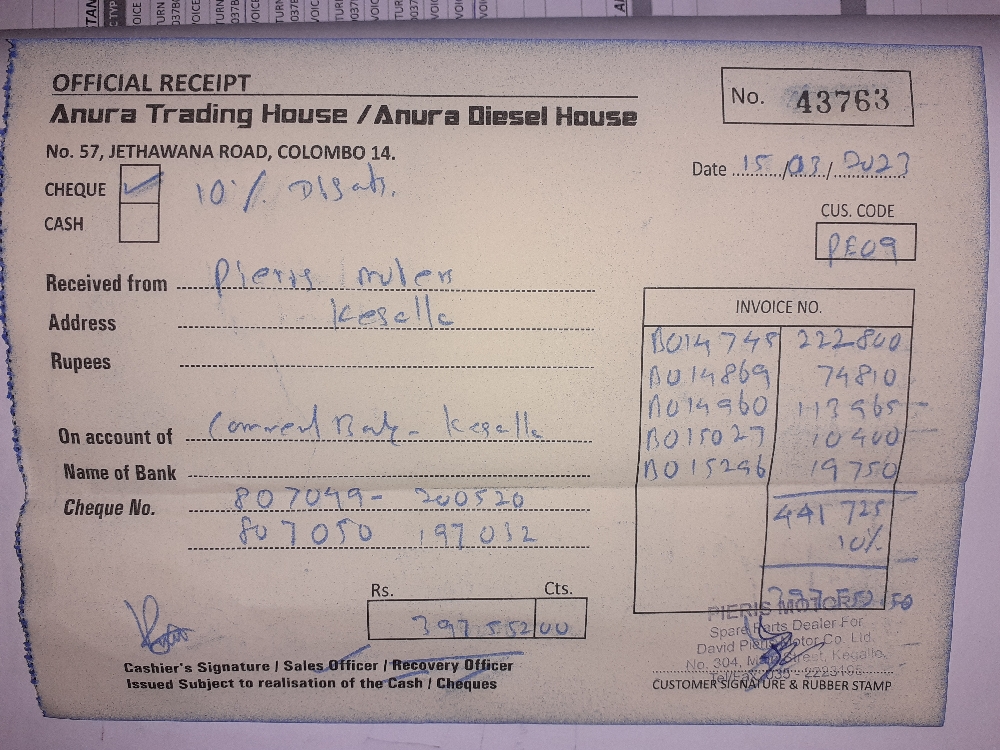 OFFICIAL RECEIPT
Anura Trading House / Anura Diesel House
No. 57, JETHAWANA ROAD, COLOMBO 14.
No. 43763
Date 15/03/2023
CHEQUE 10%
CASH
CUS. CODE
PE09
Received from Pieris
Address Kegalla
Rupees
On account of Kegalla
Name of Bank
Cheque No. 807049- 200520
807050 197032
INVOICE NO.
B014748 222800
B014869 74810
B014960 113965-
B015027 10400
B015296 19750
441 725
10%
397552.50
Rs. Cts.
397552 00
Cashier's Signature / Sales Officer / Recovery Officer
Issued Subject to realisation of the Cash / Cheques
PIERIS MOTORS
Spare Parts Dealer For
David Pieris Motor Co. Ltd.
No. 304, Main Street, Kegalle.
Tel/Fax: 035 -
CUSTOMER SIGNATURE & RUBBER STAMP